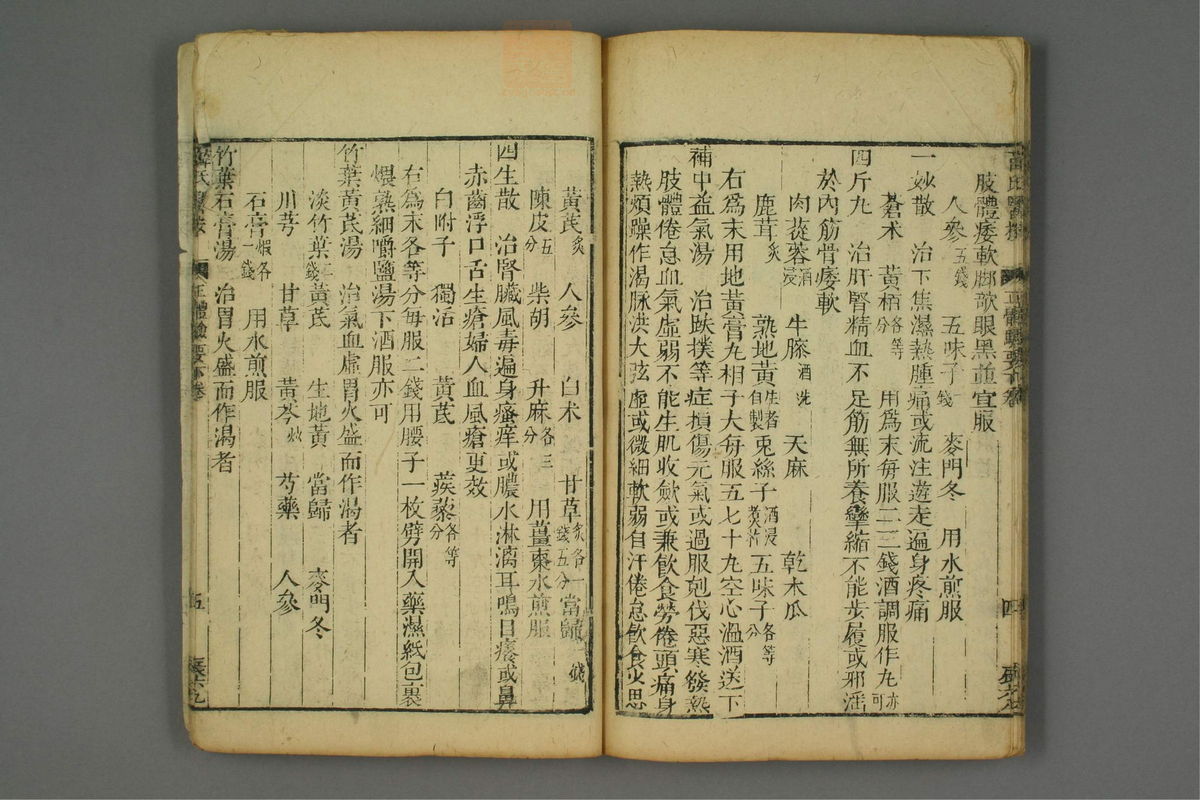 肢體痿軟脚欹眼黑並宜服
人參五錢 五味子錢 麥門冬 用水煎服
一妙散 治下焦濕熱腫痛或流注遊走遍身疼痛
蒼术 黃栢各等分 用爲末每服二三錢酒調服作丸亦可
四斤丸 治肝腎精血不足筋無所養攣縮不能步履或邪淫
於內筋骨痿軟
肉蓯蓉酒浸 牛膝酒洗 天麻 乾木瓜
鹿茸炙 熟地黃生者自製 兎絲子酒浸煑 五味子各等分
右爲末用地黃膏丸相子大每服五七十丸空心溫酒送下
補中益氣湯 治跌撲等症損傷元氣或過服剋伐惡寒發熱
肢體倦怠血氣虛弱不能生肌收斂或兼飲食勞倦頭痛身
熱煩躁作渴脉洪大弦虛或微細軟弱自汗倦怠飲食少思
黃芪炙 人參 白术 甘草炙各一錢五分 當歸錢
陳皮五分 柴胡 升麻各三分 用薑棗水煎服
四生散 治腎臟風毒遍身瘙痒或膿水淋漓耳鳴目癢或鼻
赤齒浮口舌生瘡婦人血風瘡更效
白附子 獨活 黃芪 蒺藜各等分
右爲末各等分每服二錢用腰子一枚劈開入藥濕紙包裹
煨熟細嚼鹽湯下酒服亦可
竹葉黃芪湯 治氣血虛胃火盛而作渴者
淡竹葉二錢 黃芪 生地黃 當歸 麥門冬
川芎 甘草 黃芩炒 芍藥 人參
石膏煅各一錢 用水煎服
竹葉石膏湯 治胃火盛而作渴者
正體類要下卷
五